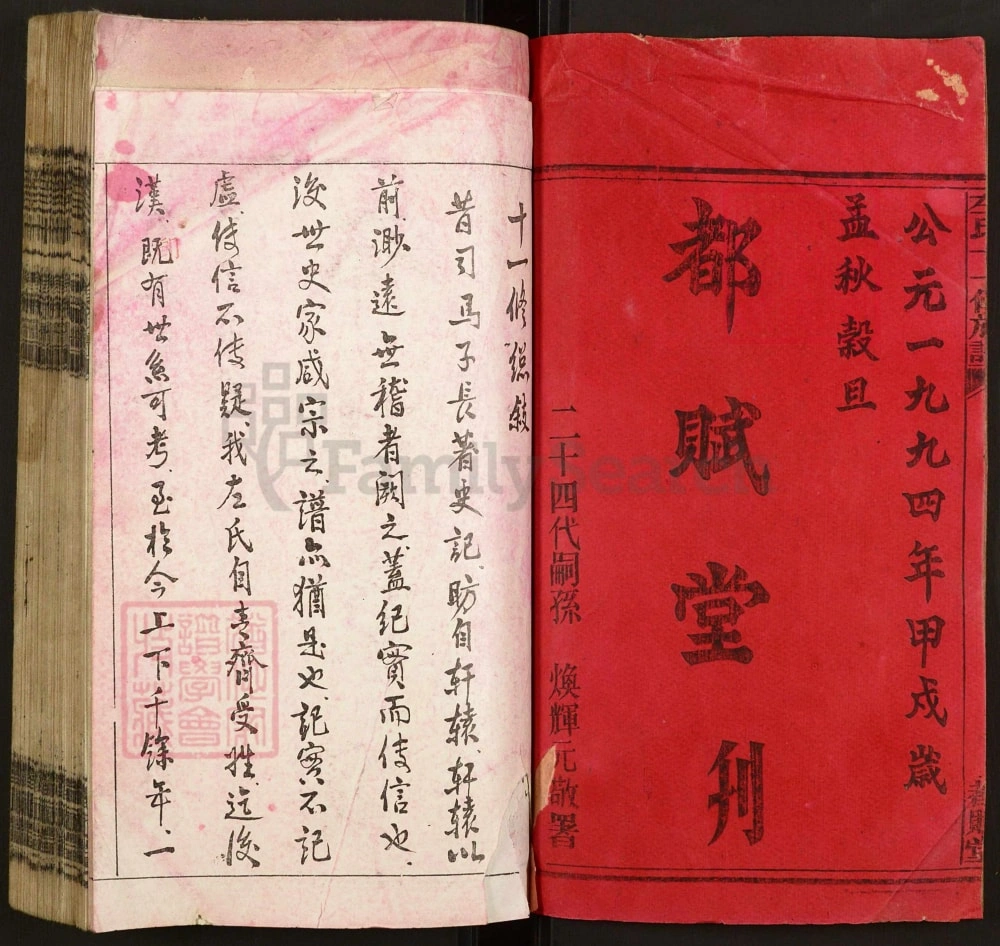 公元一九九四年甲戍歲
孟秋穀旦
都賦堂刊
二十四代嗣孫 煥輝元敬署
十一修總敘
昔司馬子長著史記、昉自轩辕、轩辕以
前、渺遠無稽者闕之、蓋纪實而傳信也、
後世史家咸宗之、譜亦猶是也、記實不記
虛、傳信不傳疑、我左氏自青齊受姓、迄後
漢、既有世系可考、至於今上下千餘年、一
FamilySearch